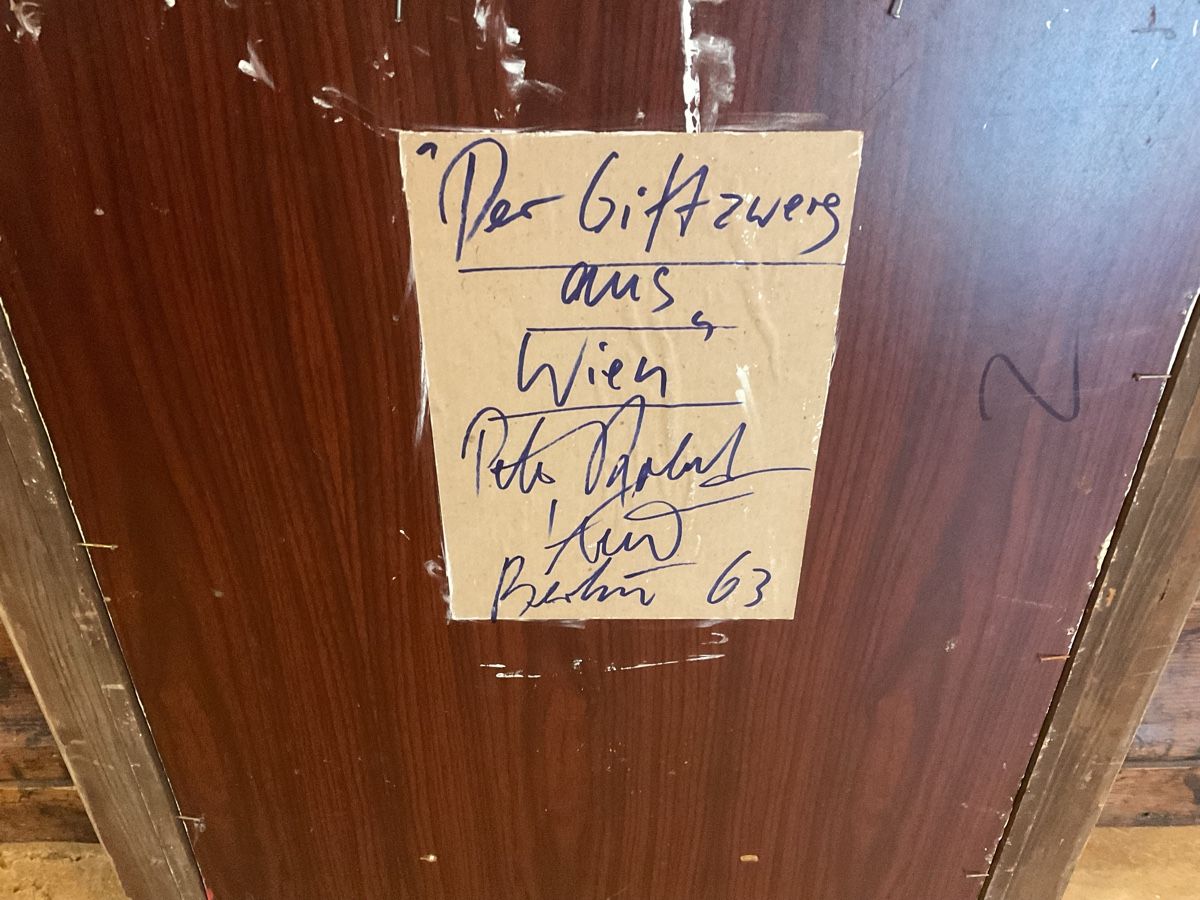 "Der Giftzwerg
aus
Wien"
Peter
Berlin 63
N